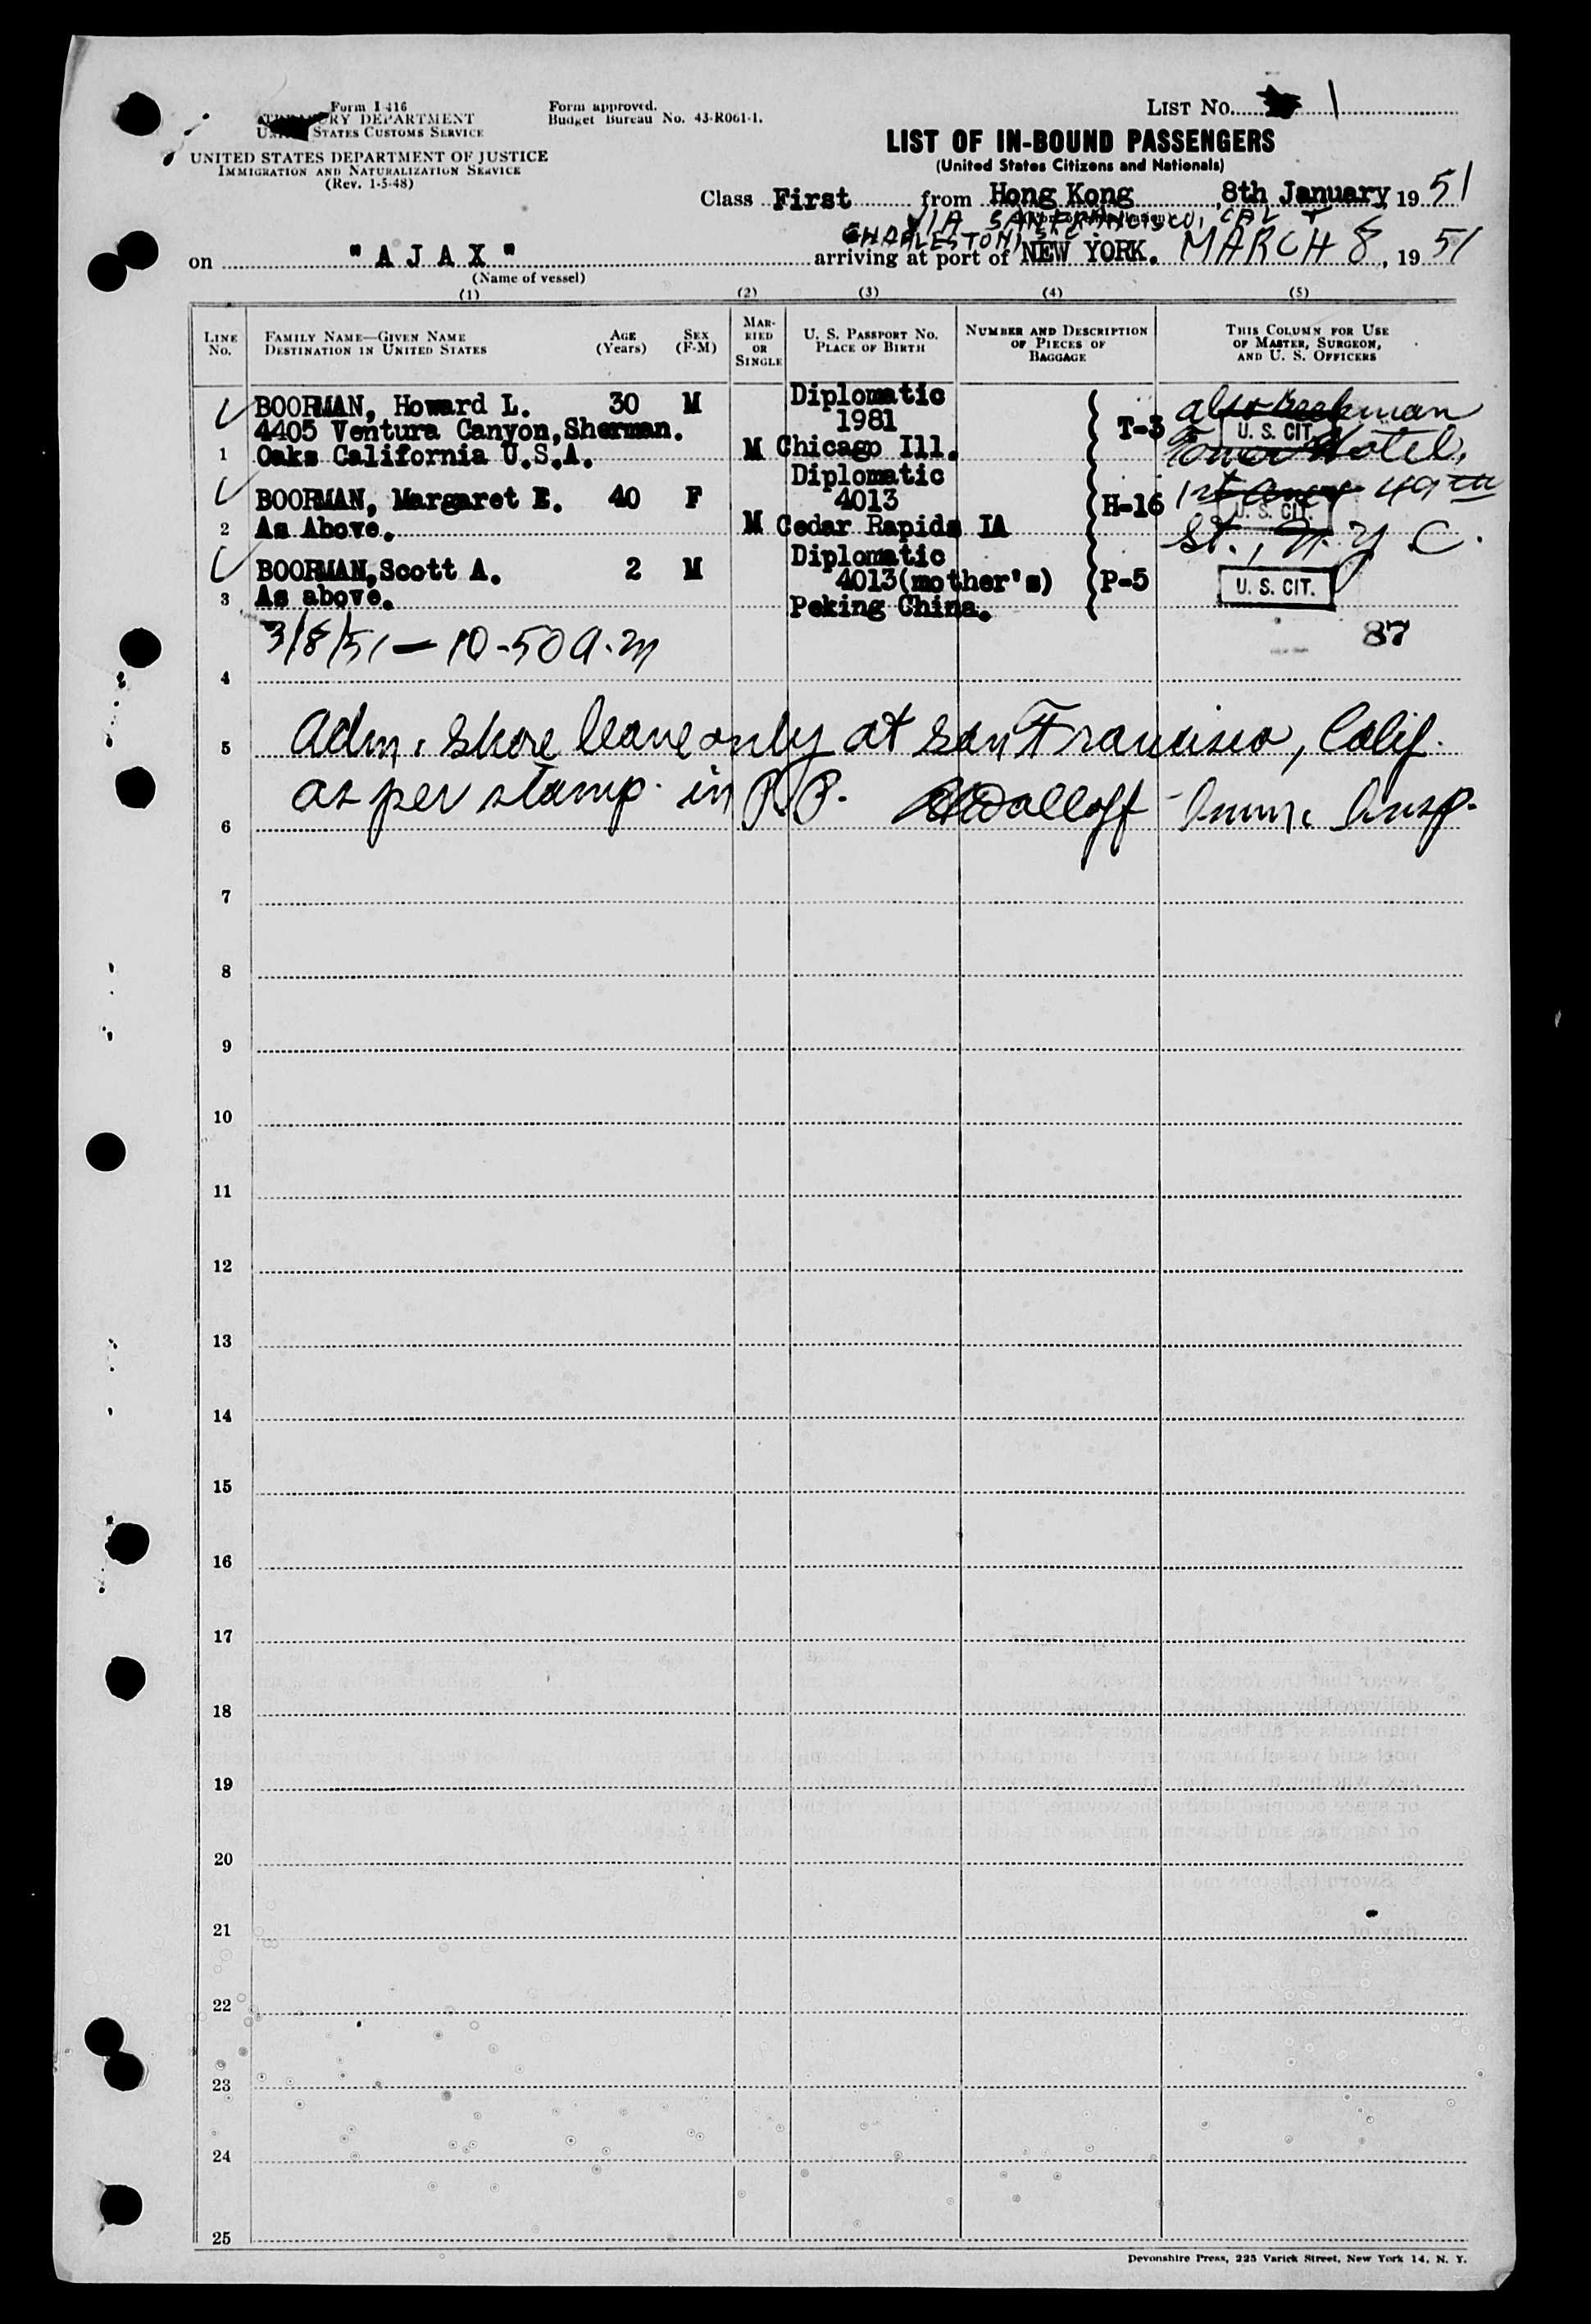 Form I-416
TREASURY DEPARTMENT
UNITED STATES CUSTOMS SERVICE
UNITED STATES DEPARTMENT OF JUSTICE
IMMIGRATION AND NATURALIZATION SERVICE
(Rev. 1-5-48)
Form approved.
Budget Bureau No. 43-R061-1.
LIST No. 1
LIST OF IN-BOUND PASSENGERS
(United States Citizens and Nationals)
Class First from Hong Kong, 8th January, 1951
VIA SAN FRANCISCO, CAL
CHARLESTON, S.C.
on "AJAX" arriving at port of NEW YORK. MARCH 8, 1951
(Name of vessel)
(1) (2) (3) (4) (5)
LINE No. FAMILY NAME—GIVEN NAME DESTINATION IN UNITED STATES AGE (Years) SEX (F-M) MARRIED OR SINGLE U. S. PASSPORT No. PLACE OF BIRTH NUMBER AND DESCRIPTION OF PIECES OF BAGGAGE THIS COLUMN FOR USE OF MASTER, SURGEON, AND U. S. OFFICERS
BOORMAN, Howard L. 30 M Diplomatic also Beekman
4405 Ventura Canyon, Sherman. 1981 T-3 U. S. CIT.
1 Oaks California U.S.A. M Chicago Ill. Tower Hotel,
BOORMAN, Margaret E. 40 F Diplomatic 4013 H-16 1st 49th
U. S. CIT.
2 As Above. M Cedar Rapids IA St., N.Y.C.
BOORMAN, Scott A. 2 M Diplomatic 4013(mother's) P-5 U. S. CIT.
3 As above. Peking China.
3/8/51 — 10-50 A.M 87
4
5 Adm. Shore leave only at San Francisco, Calif.
6 as per stamp in P.P. Imm. Insp.
7
8
9
10
11
12
13
14
15
16
17
18
19
20
21
22
23
24
25
Devonshire Press, 225 Varick Street, New York 14, N. Y.